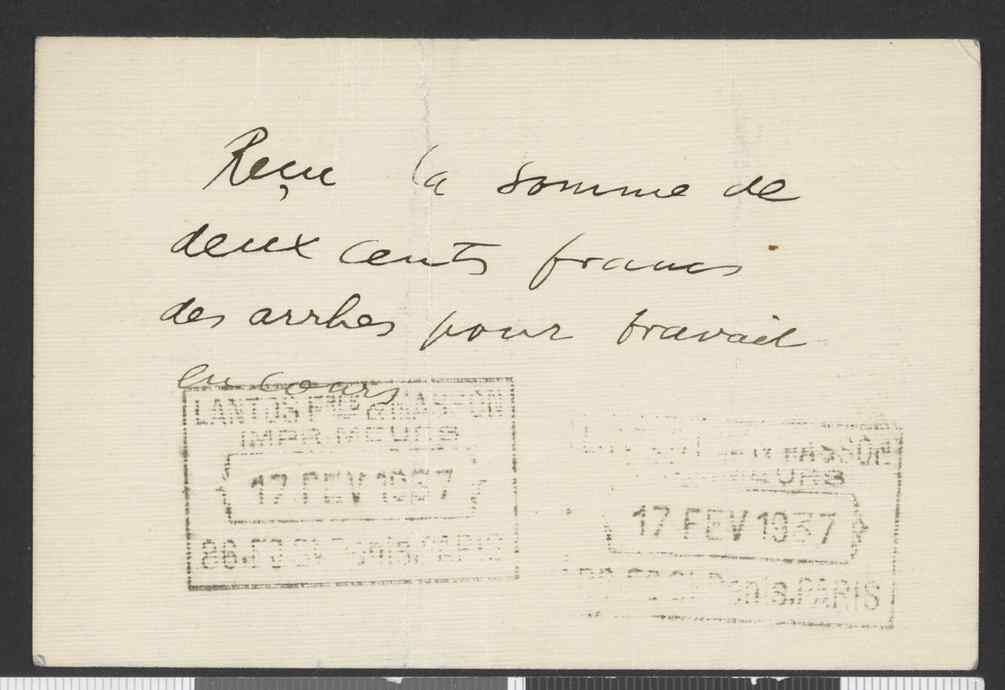 Reçu la somme de
deux cents francs
des arrhes pour travail
en cours
LANTOS Fres & MASSON
IMPRIMEURS
17 FEV 1937
Fg St Denis. PARIS
MASSON
IMPRIMEURS
17 FEV 1937
Denis. PARIS